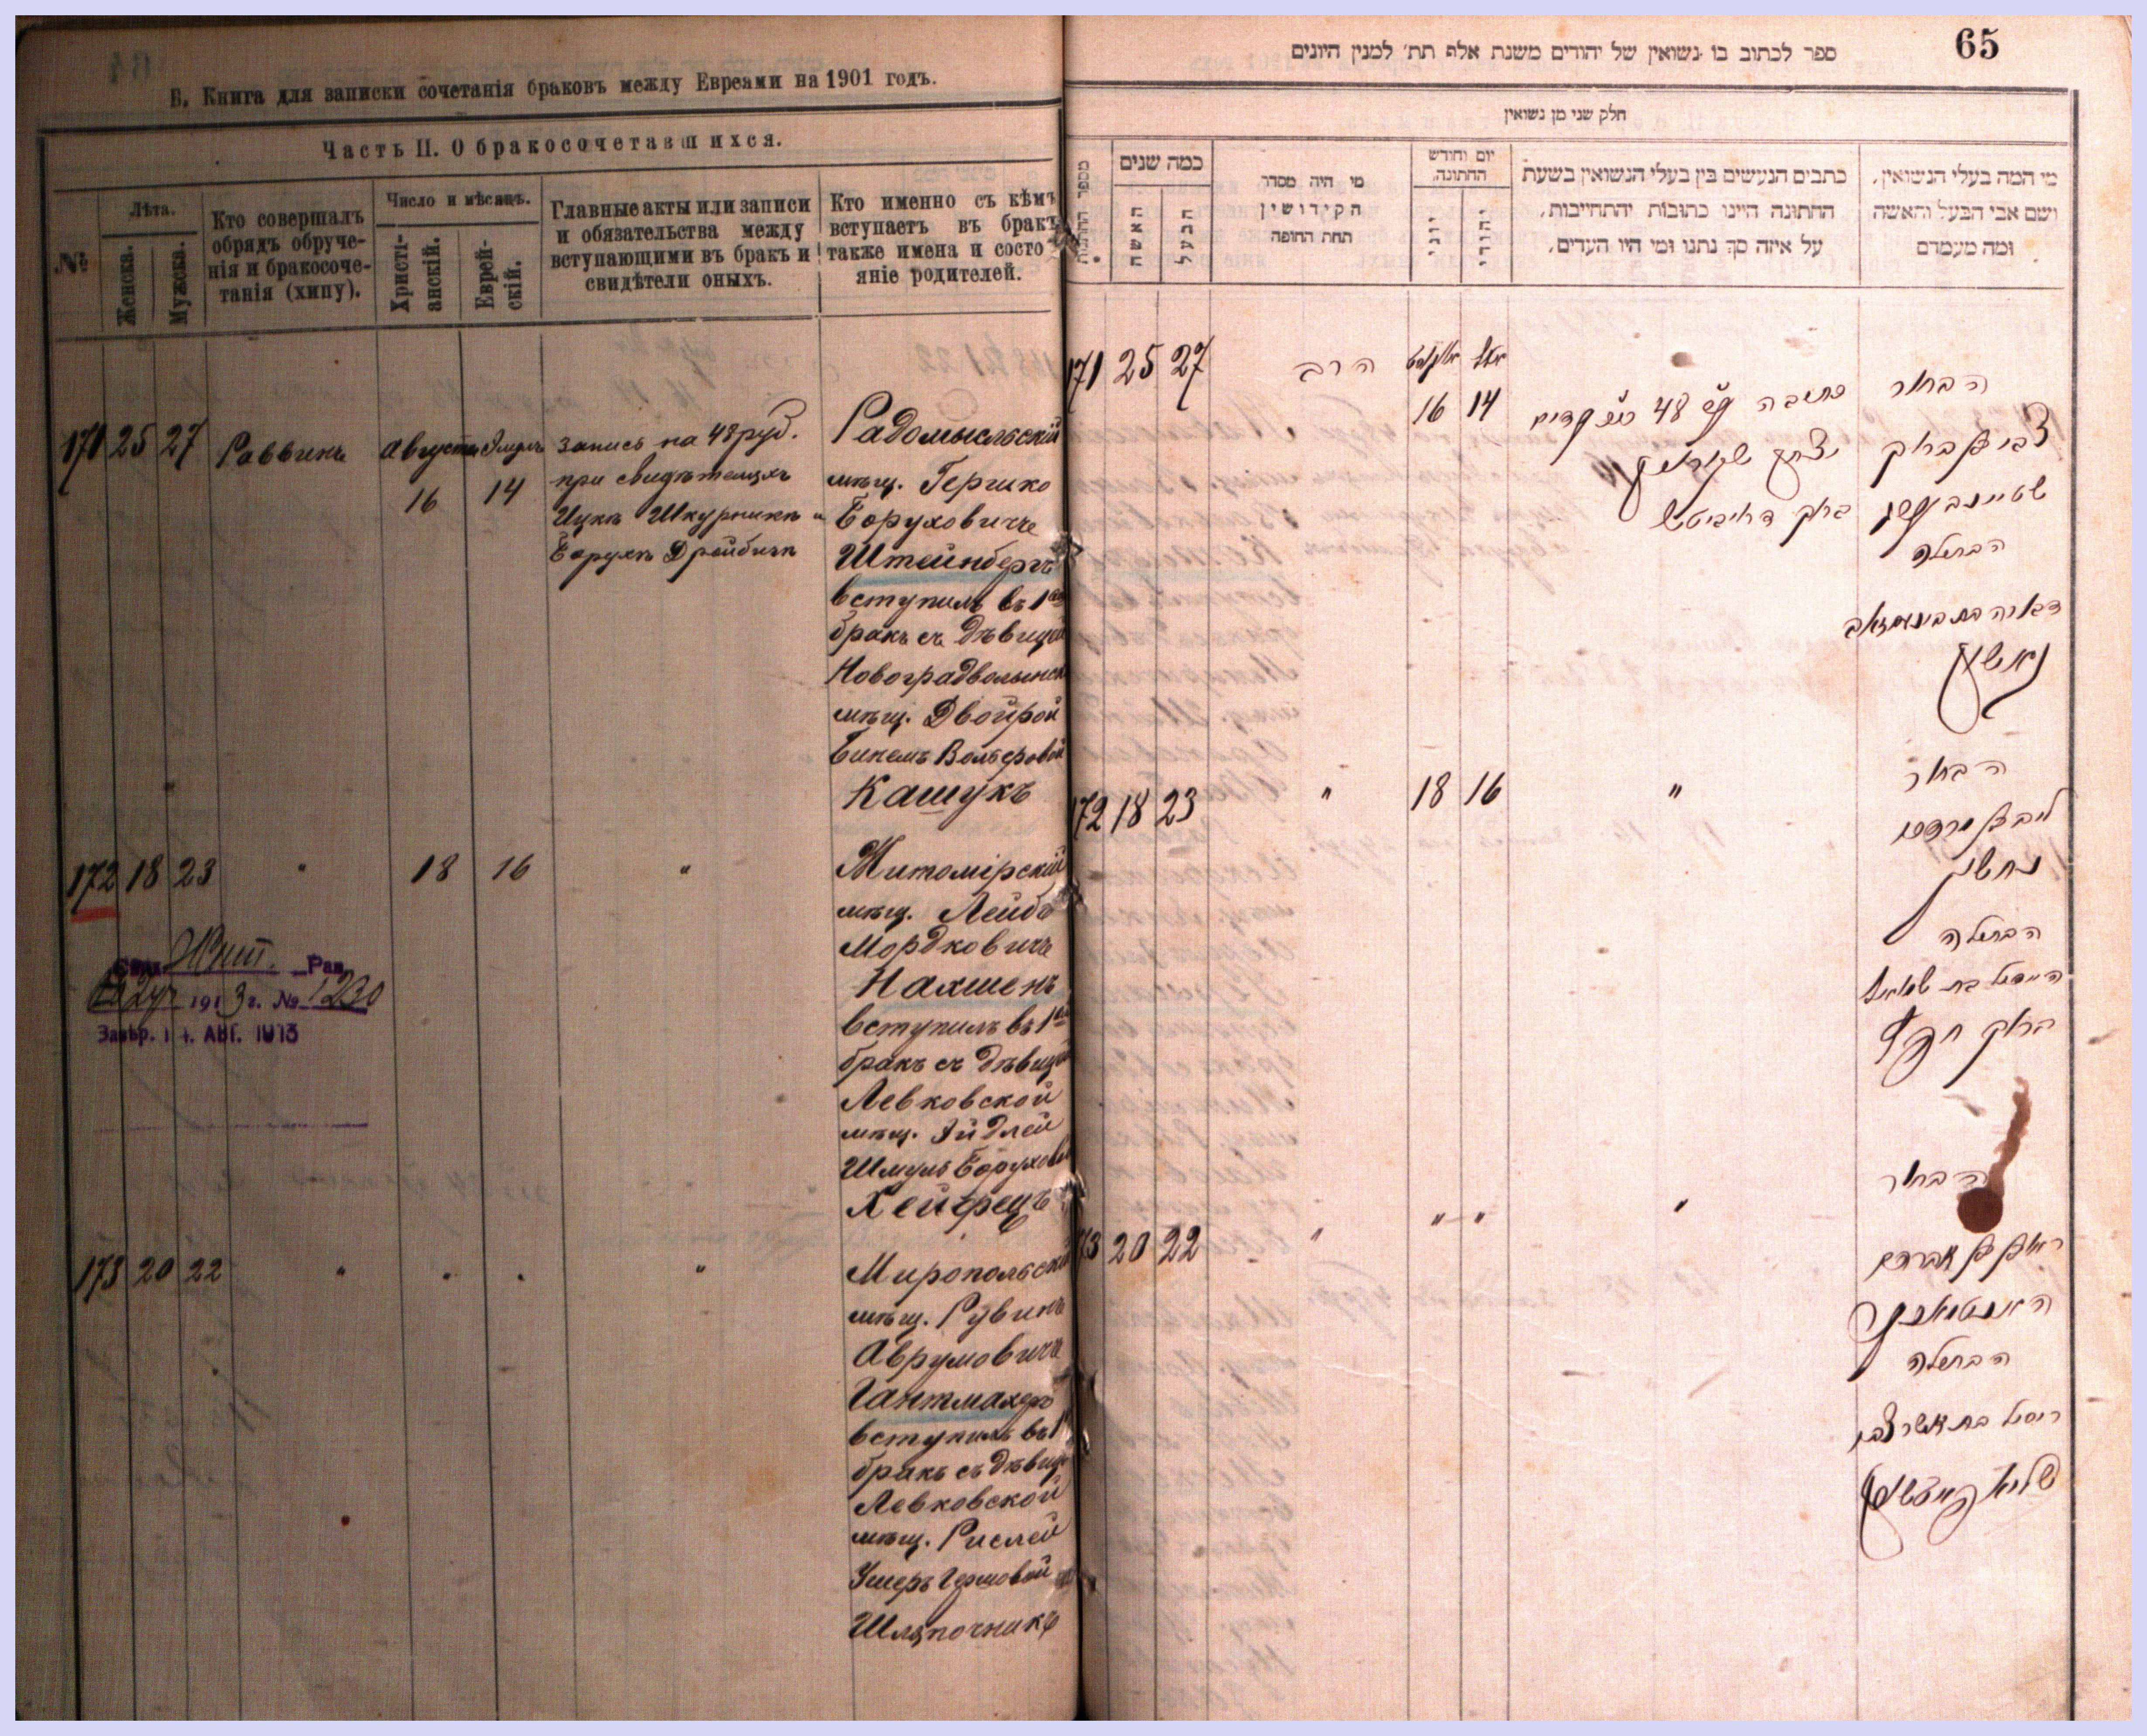 Б. Книга для записки сочетанія браковъ между Евреями на 1901 годъ.
Часть II. О бракосочетавшихся.
№
Лѣта.
Женска.
Мужска.
Кто совершалъ
обрядъ обруче-
нія и бракосоче-
танія (хипу).
Число и мѣсяцъ.
Христі-
анскій.
Еврей-
скій.
Главные акты или записи
и обязательства между
вступающими въ бракъ и
свидѣтели оныхъ.
Кто именно съ кѣмъ
вступаетъ въ бракъ
также имена и состо
яніе родителей.
171 25 27 Раввинъ
Августа Элулъ
16 14
запись на 48 руб.
при свидѣтеляхъ
Ицкъ Шкурникъ и
Борухъ Дройбичъ
Радомысльскій
мѣщ. Гершко
Боруховичъ
Штейнбергъ
вступилъ въ 1ый
бракъ съ дѣвицей
Новоградволынск
мѣщ. Двойрой
Бинемъ Вольфовой
Кашукъ
172 18 23 " 18 16 "
Житомірскій
мѣщ. Лейбъ
Мордковичъ
Нахшенъ
вступилъ въ 1ый
бракъ съ дѣвицей
Левковской
мѣщ. Эйдлей
Шмуль Борухово
Хейфецъ
Жит. Рав.
1913 г. № 1230
Завѣр. 14. АВГ. 1913
173 20 22 " " " "
Миропольскій
мѣщ. Рувинъ
Аврумовичъ
Гантмахеръ
вступилъ въ 1
бракъ съ дѣвице
Левковской
мѣщ. Рислей
Ушеръ Гершовой
Шляпочникъ
65
ספר לכתוב בו נשואין של יהודים משנת אלף תת׳ למנין היונים
חלק שני מן נשואין
מספר החתונות
כמה שנים
האשה
הבעל
מי היה מסדר
הקידושין
תחת החופה
יום וחודש
החתונה.
יוני
יהודי
כתבים הנעשים בין בעלי הנשואין בשעת
החתונה היינו כתובות והתחייבות,
על איזה סך נתנו ומי היו העדים.
מי המה בעלי הנשואין,
ושם אבי הבעל והאשה
ומה מעמדם
171 25 27
הרב
אויגוסט אלול
16 14
כתובה 48
הבחור
צבי בן ברוך
שטיינבערג
הבתולה
172 18 23 " 18 16 "
הבחור
ליב בן מרדכי
נחשן
הבתולה
היידיל בת שמואל
ברוך חפץ
173 20 22 " " " "
הבחור
ראובן בן אברהם
האנטמאכער
הבתולה
ריסיל בת אשר צבי